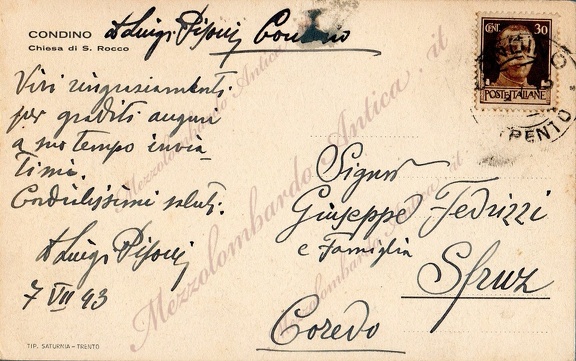 CONDINO
Chiesa di S. Rocco
Luigi Pisoni Condino
Vivi ringraziamenti
per graditi auguri
a suo tempo invia-
timi.
Cordialissimi saluti.
Luigi Pisoni
7 VII 43
TIP. SATURNIA - TRENTO
CENT. 30
POSTE ITALIANE
TRENTO
Signor
Giuseppe Fedrizzi
e Famiglia
Sfruz
Coredo
Mezzolombardo Antica.it
Mezzolombardo Antica.it
Mezzolombardo Antica.it